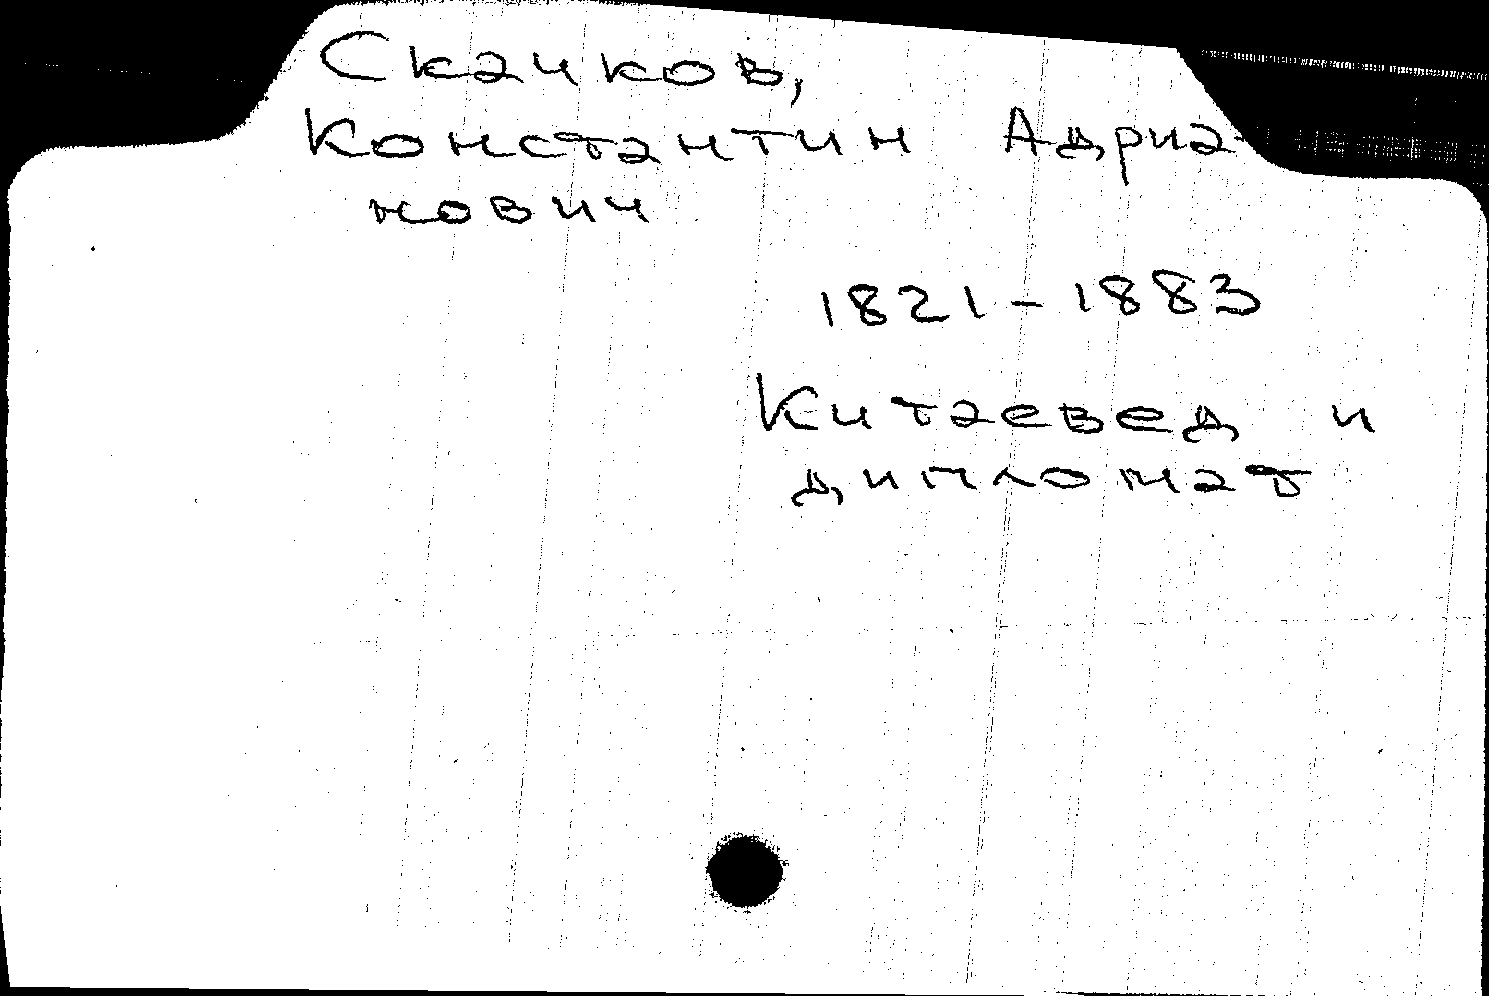 Скачков,
Константин Адриа-
нович
1821-1883
Китаевед и
дипломат